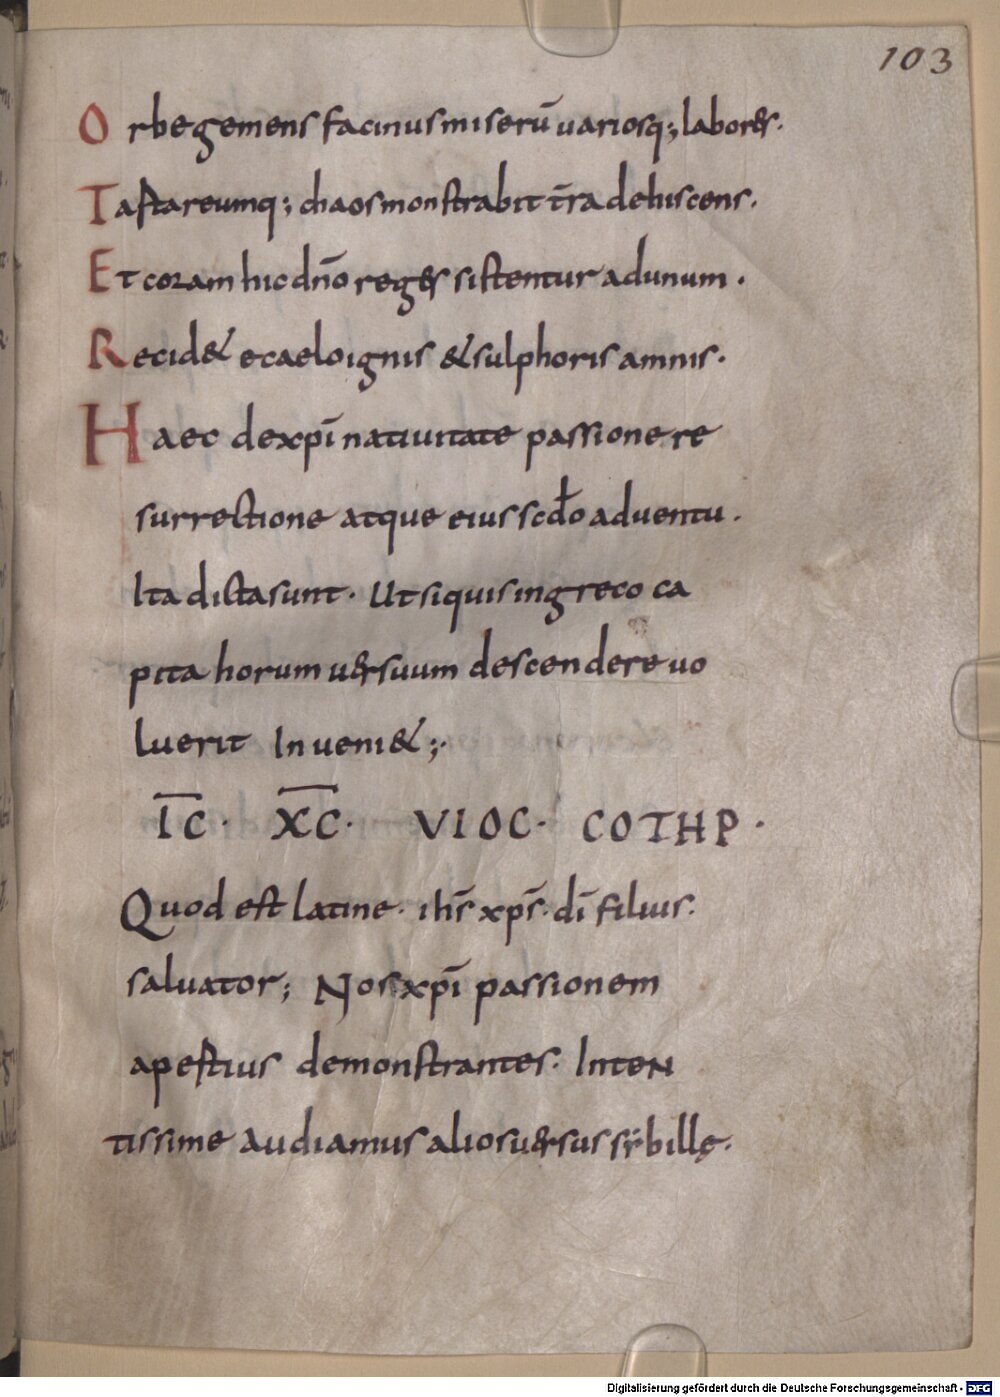 103
Orbe gemens facinus miserū uariosq; labores.
Tastareumq; chaos monstrabit t̄ra dehiscens.
Et coram hic dn̄o reges sistentur adunum.
Recid& e caelo ignis & sulphoris amnis.
Haec de xpī natiuitate passione re
surrectione atque eius scdo aduentu.
Ita dicta sunt. Ut siquis in greco ca
pita horum uersuum descendere uo
luerit Inueni&;
I̅C̅. X̅C̅. VIOC. COTHP.
Quod est latine. ihs̄ xps̄. dī filius.
saluator; Nos xpī passionem
apestius demonstrantes. Inten
tissime audiamus alios uersus sẏbillę.
Digitalisierung gefördert durch die Deutsche Forschungsgemeinschaft - DFG